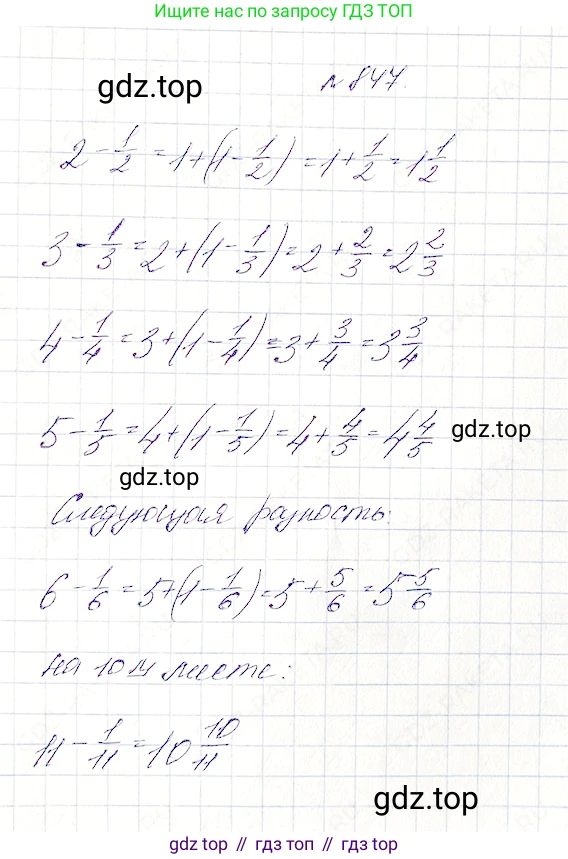 Ищите решения по запросу ГДЗ ТОП
gdz.top
№ 847.
2 - 1/2 = 1 + (1 - 1/2) = 1 + 1/2 = 1 1/2
3 - 1/3 = 2 + (1 - 1/3) = 2 + 2/3 = 2 2/3
4 - 1/4 = 3 + (1 - 1/4) = 3 + 3/4 = 3 3/4
5 - 1/5 = 4 + (1 - 1/5) = 4 + 4/5 = 4 4/5
gdz.top
gdz.top
Следующая разность:
6 - 1/6 = 5 + (1 - 1/6) = 5 + 5/6 = 5 5/6
на 10м месте:
11 - 1/11 = 10 10/11
gdz.top
gdz топ // гдз топ // гдз top